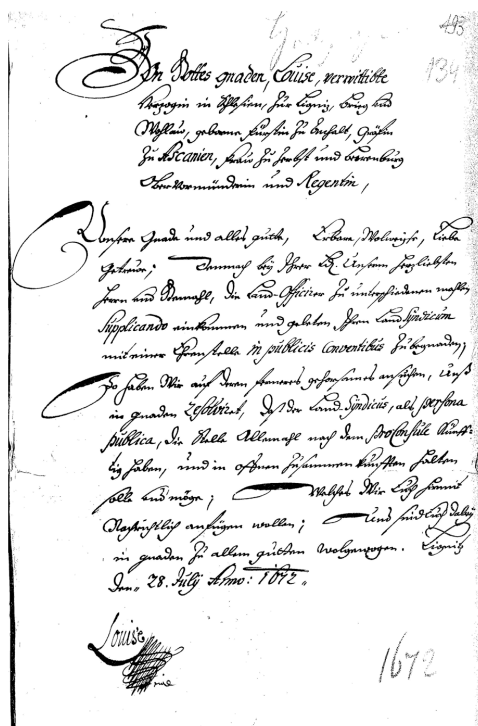 193
134
Von Gottes gnaden, Louise, verwittibte
Herzogin in Schlesien, zur Lignitz, Brieg und
Wohlau, geborne Fürstin zu Anhalt, Gräfin
zu Ascanien, Frau zu Zerbst und Beerenburg
Obervormünderin und Regentin,
Unsere Gnade und alles gutte, Erbare, Wolweyse, Liebe
Getreue; Demnach bey Ihrer Ld. Unserm herzliebsten
Herrn und Gemahl, die Land-Officirer zu unterschiedenen mahlen
Supplicando einkommen und gebeten Ihren Land Syndicum
mit einer Ehrenstelle in publicis Conventibus zu begnaden;
So haben Wir auf deren ferneres gehorsames ansuchen, Unß
in gnaden Resolviret, daß der Land-Syndicus, als persona
publica, die Stelle Allemahl nach dem Proconsule Künff-
tig haben, und in offnen Zusammenkünfften halten
solle und möge; Welches Wir Euch hiermit
Nachrichtlich anfügen wollen; Und seind Euch dabey
in gnaden zu allem gutten wolgewogen. Lignitz
den 28. July Anno: 1672.
Louise
1672